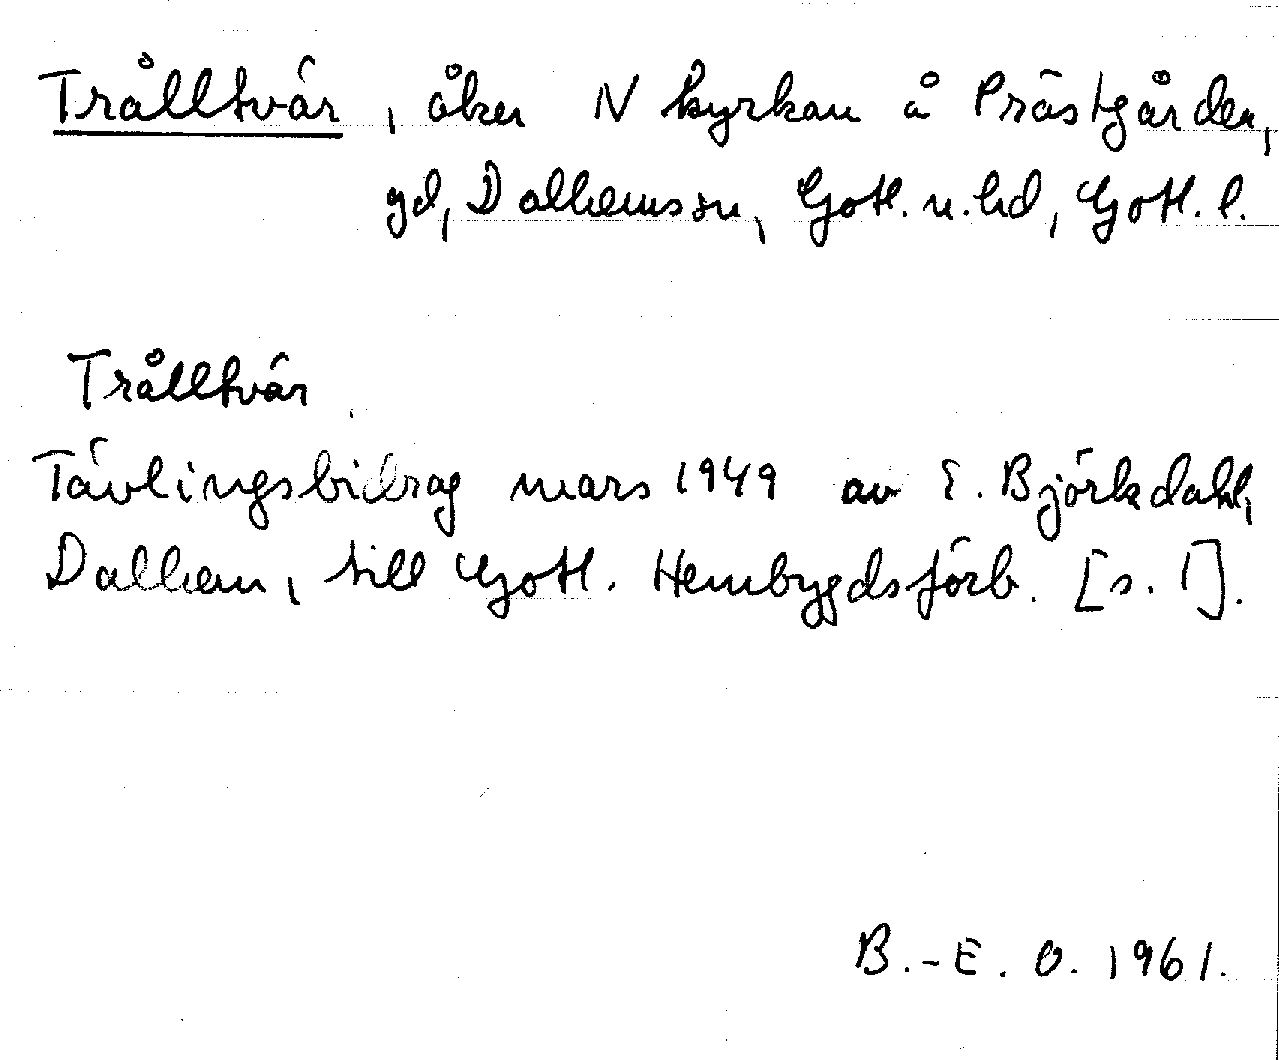 Trålltvär, åker N kyrkan å Prästgården,
gd, Dalhems sn, Gotl. n. hd, Gotl. l.
Trålltvär
Tävlingsbidrag mars 1949 av E. Björkdahl,
Dalhem, till Gotl. Hembygdsförb. [s. 1].
B.-E. O. 1961.